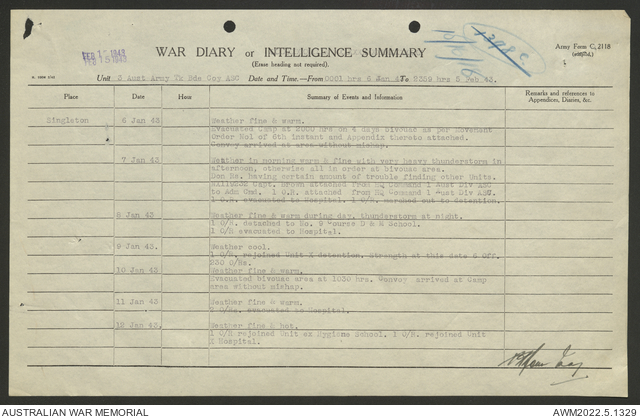 FEB 15 1943
WAR DIARY or INTELLIGENCE SUMMARY
(Erase heading not required).
Army Form C. 2118
Unit 2 Aust Army Tk Bde Coy ASC Date and Time.—From 0001 hrs 6 Jan 43 To 2359 hrs 5 Feb 43.
Place Date Hour Summary of Events and Information Remarks and references to Appendices, Diaries, &c.
Singleton 6 Jan 43 Weather fine & warm.
Evacuated Camp at 2000 hrs on 4 days bivouac as per Movement
Order No1 of 6th instant and Appendix thereto attached.
Convoy arrived at area without mishap.
7 Jan 43 Weather in morning warm & fine with very heavy thunderstorm in
afternoon, otherwise all in order at bivouac area.
Don Rs. having certain amount of trouble finding other Units.
Capt. Brown attached from HQ Command 1 Aust Div ASC
to Adm Cmd. 1 O.R. attached from HQ Command 1 Aust Div ASC.
1 O.R. evacuated to Hospital. 1 O/R. marched out to detention.
8 Jan 43 Weather fine & warm during day, thunderstorm at night.
1 O/R. detached to No. 9 Course D & M School.
1 O/R evacuated to Hospital.
9 Jan 43 Weather cool.
1 O/R. rejoined Unit X detention. Strength at this date 8 Off.
233 O/Rs.
10 Jan 43 Weather fine & warm.
Evacuated bivouac area at 1030 hrs. Convoy arrived at Camp
area without mishap.
11 Jan 43 Weather fine & warm.
2 O/Rs. evacuated to Hospital.
12 Jan 43. Weather fine & hot.
1 O/R rejoined Unit ex Hygiene School. 1 O/R. rejoined Unit
X Hospital.
AUSTRALIAN WAR MEMORIAL
AWM2022.5.1329